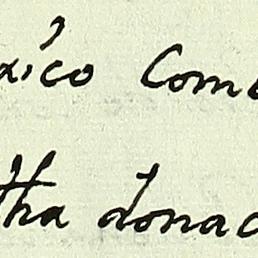 aico Com
tha Jonac